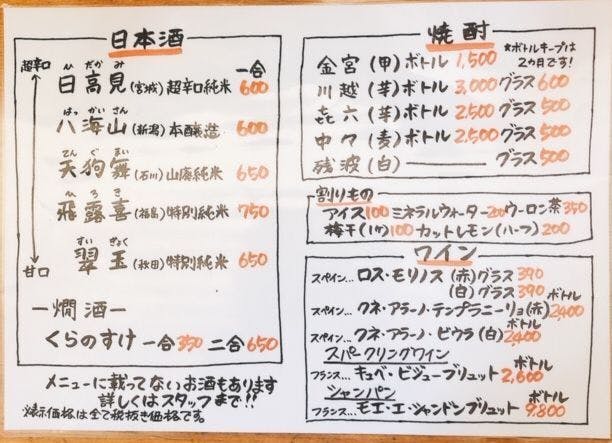 日本酒
超辛口
一合
ひだかみ
日高見(宮城)超辛口純米 600
はっかいさん
八海山(新潟)本醸造 600
てんぐまい
天狗舞(石川)山廃純米 650
ひろき
飛露喜(福島)特別純米 750
すいぎょく
翠玉(秋田)特別純米 650
甘口
ー燗酒ー
くらのすけ 一合350 二合650
メニューに載ってないお酒もあります
詳しくはスタッフまで!!
*表示価格は全て税抜き価格です。
焼酎
*ボトルキープは
2カ月です!
金宮(甲)ボトル 1,500
川越(芋)ボトル 3,000 グラス 600
㐂六(芋)ボトル 2,500 グラス 500
中々(麦)ボトル 2,500 グラス 500
残波(白)グラス 500
割りもの
アイス100 ミネラルウォーター200 ウーロン茶350
梅干(1ケ)100 カットレモン(ハーフ)200
ワイン
スペイン…ロス・モリノス(赤)グラス 390
(白)グラス 390
ボトル
スペイン…クネ・アラーノ・テンプラニーリョ(赤)2,400
ボトル
スペイン…クネ・アラーノ・ビウラ(白)2,400
スパークリングワイン
ボトル
フランス…キュベ・ビジューブリュット 2,600
シャンパン
ボトル
フランス…モエ・エ・シャンドンブリュット 9,800